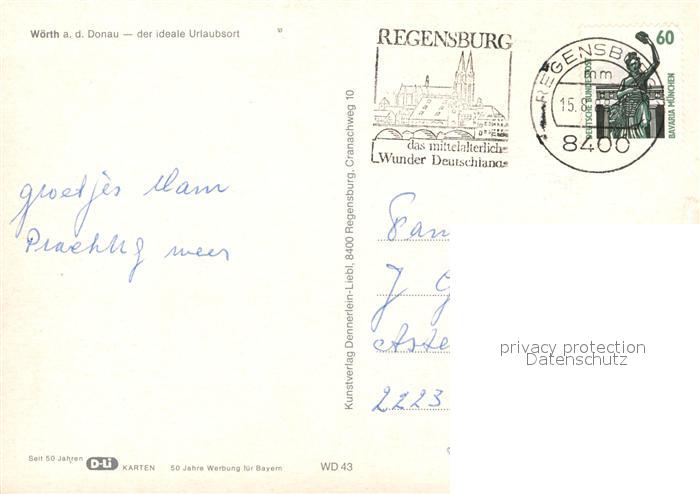 Wörth a. d. Donau — der ideale Urlaubsort
REGENSBURG
das mittelalterliche
Wunder Deutschlands
REGENSB
15.8
8400
60
DEUTSCHE BUNDESPOST
BAVARIA MÜNCHEN
groetjes Mam
Prachtig weer
Kunstverlag Dennerlein-Liebl, 8400 Regensburg, Cranachweg 10
Fam
J G
Aste
2223
privacy protection
Datenschutz
Seit 50 Jahren
D-Li KARTEN 50 Jahre Werbung für Bayern
WD 43